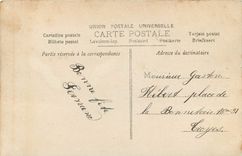 UNION POSTALE UNIVERSELLE
CARTE POSTALE
Cartolina postale
Post Karte
Tarjeta postal
Billete postal
Levelezo-lap
Dopisnice
Postkarte
Briefkaart
Partie réservée à la correspondance
Adresse du destinataire
Bonne fête
Monsieur Gaston
Hébert place de
la Bonneterie No 31
Troyes